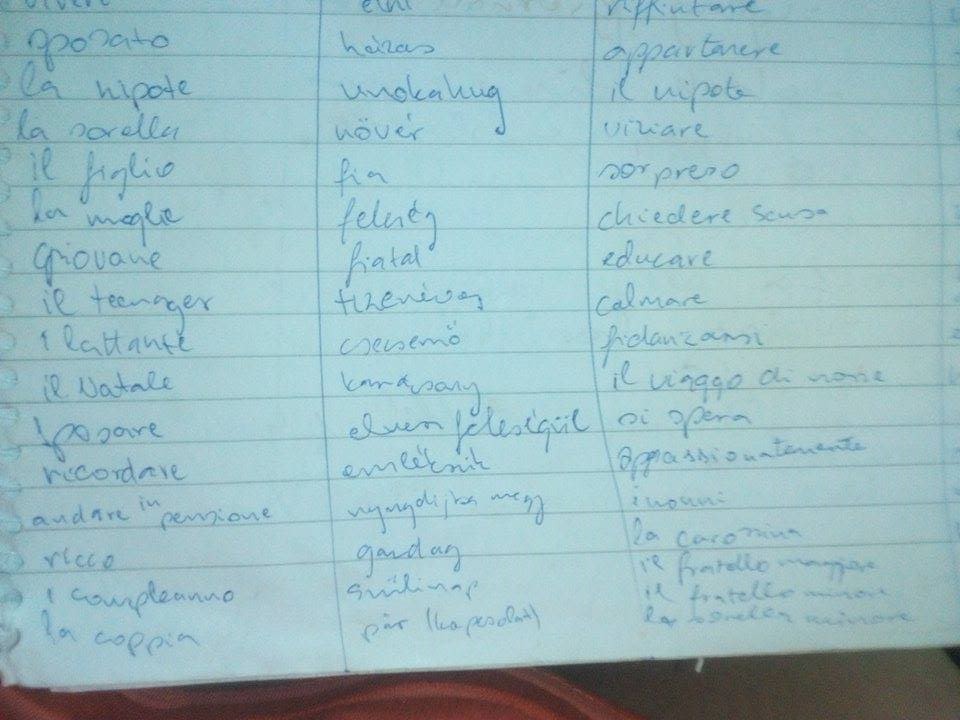 vivere élni riffiutare
sposato házas appartenere
la nipote unokahug il nipote
la sorella nővér viziare
il figlio fia sorpreso
la moglie feleség chiedere scusa
giovane fiatal educare
il teenager tizenéves calmare
i lattante csecsemő fidanzarsi
il Natale karácsony il viaggo di nozze
sposare elvesz feleségül si spera
ricordare emlékszik appassionatemente
andare in pensione nyugdíjba megy i nonni
ricco gazdag la carozzina
i compleanno szülinap il fratello maggiore
la coppia pár (kapcsolat) il fratello minore
la sorella minore